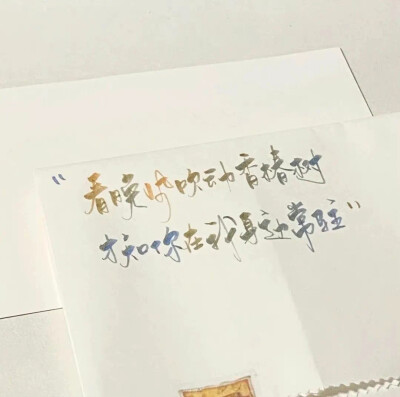 “看晚风吹动香椿树
才知你在我身边常驻”